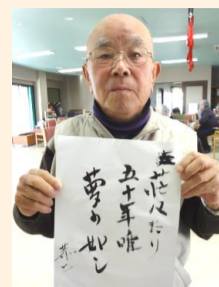 茫々たり
五十年唯
夢の如し